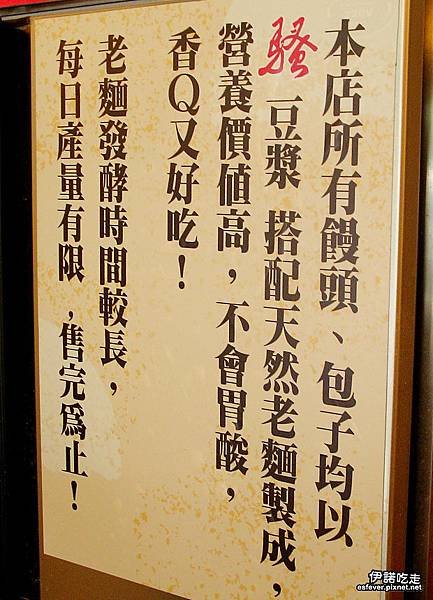 本店所有饅頭、包子均以
騷豆漿 搭配天然老麵製成，
營養價值高，不會胃酸，
香Q又好吃！
老麵發酵時間較長，
每日產量有限，售完為止！
伊諾吃走
esfever.pixnet.net